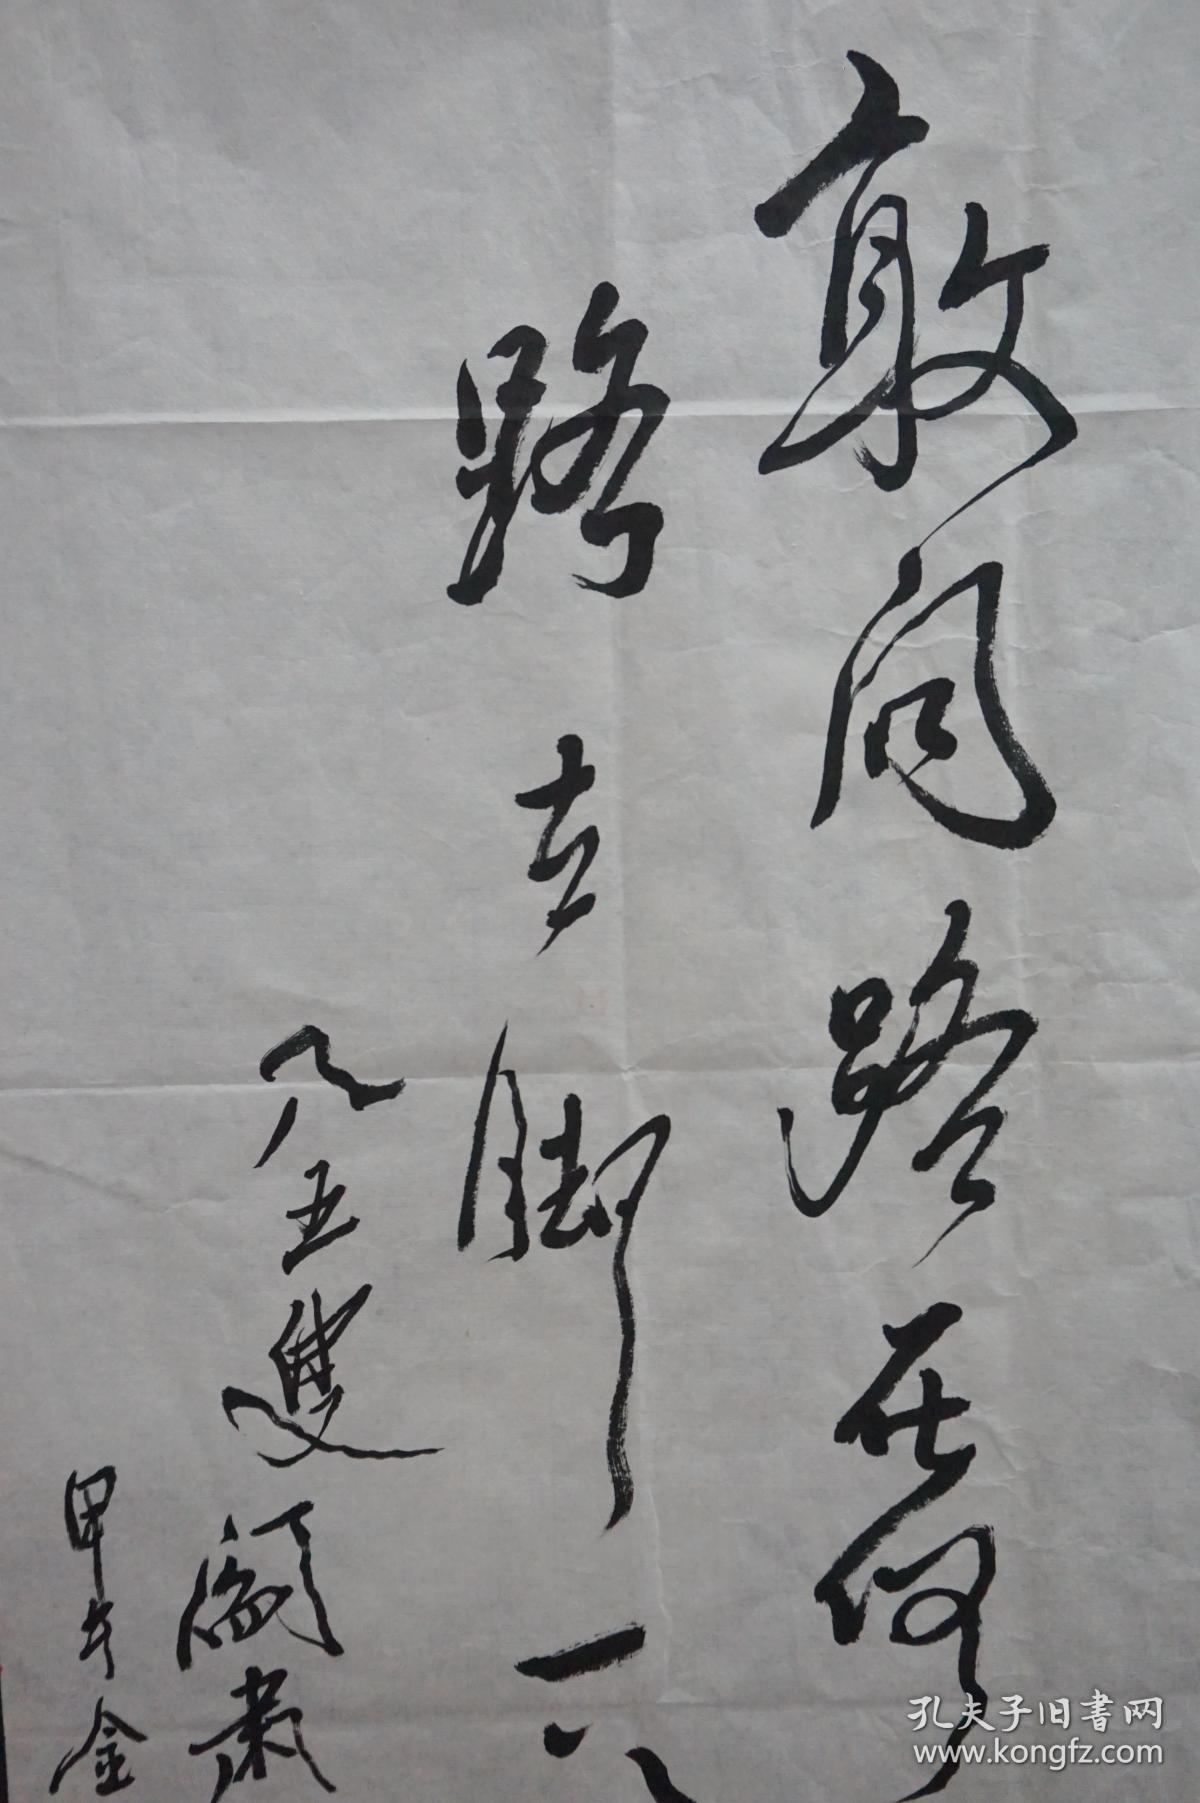 敢问路在何
路在脚下
八五叟阎肃
甲午金
孔夫子旧书网
www.kongfz.com